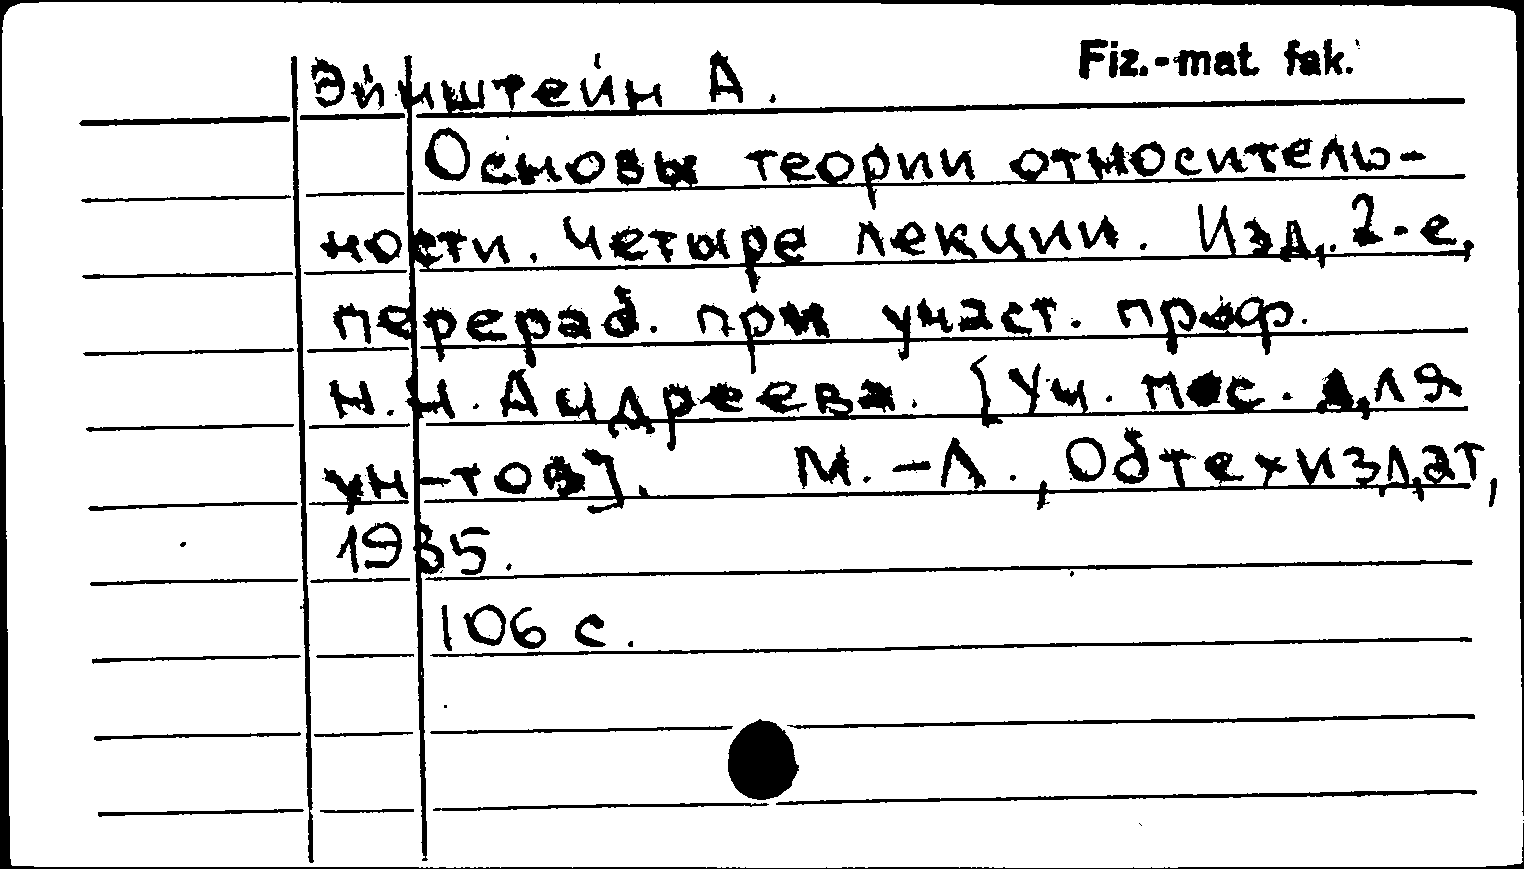 Fiz.-mat. fak.
Эйнштейн А.
Основы теории относитель-
ности. Четыре лекции. Изд. 2-е,
перераб. при участ. проф.
Н.Н. Андреева. [Уч. пос. для
ун-тов]. М.-Л., Обтехиздат,
1935.
106 с.